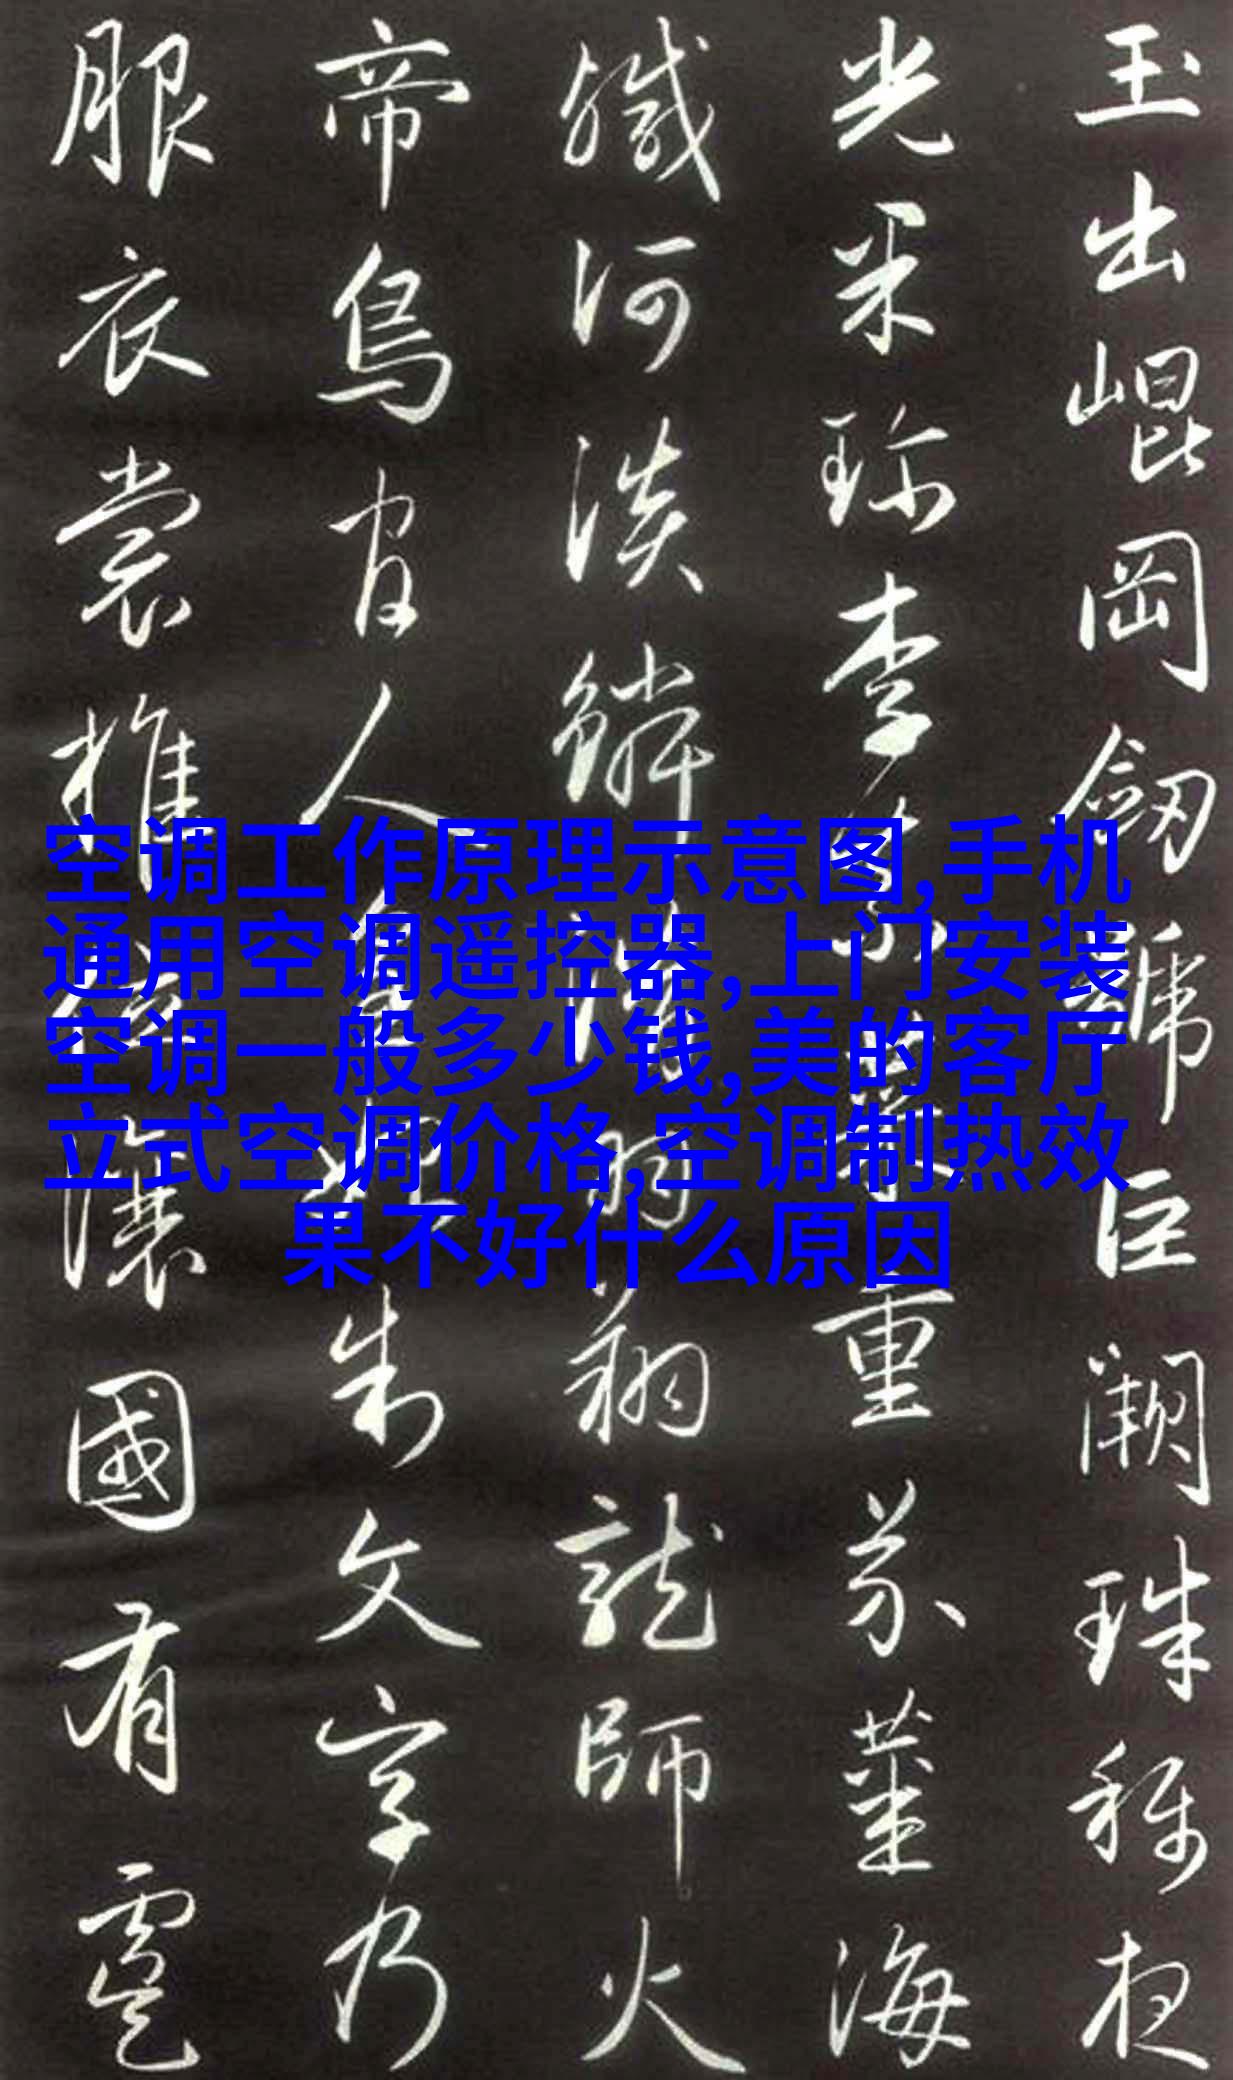 玉出崐岡劒號巨闕珠稱夜
光果珎李柰菜重芥薑海
鹹河淡鱗潜羽翔龍師火
帝鳥官人皇始制文字乃
服衣裳推位讓國有虞
空调工作原理示意图,手机
通用空调遥控器,上门安装
空调一般多少钱,美的客厅
立式空调价格,空调制热效
果不好什么原因